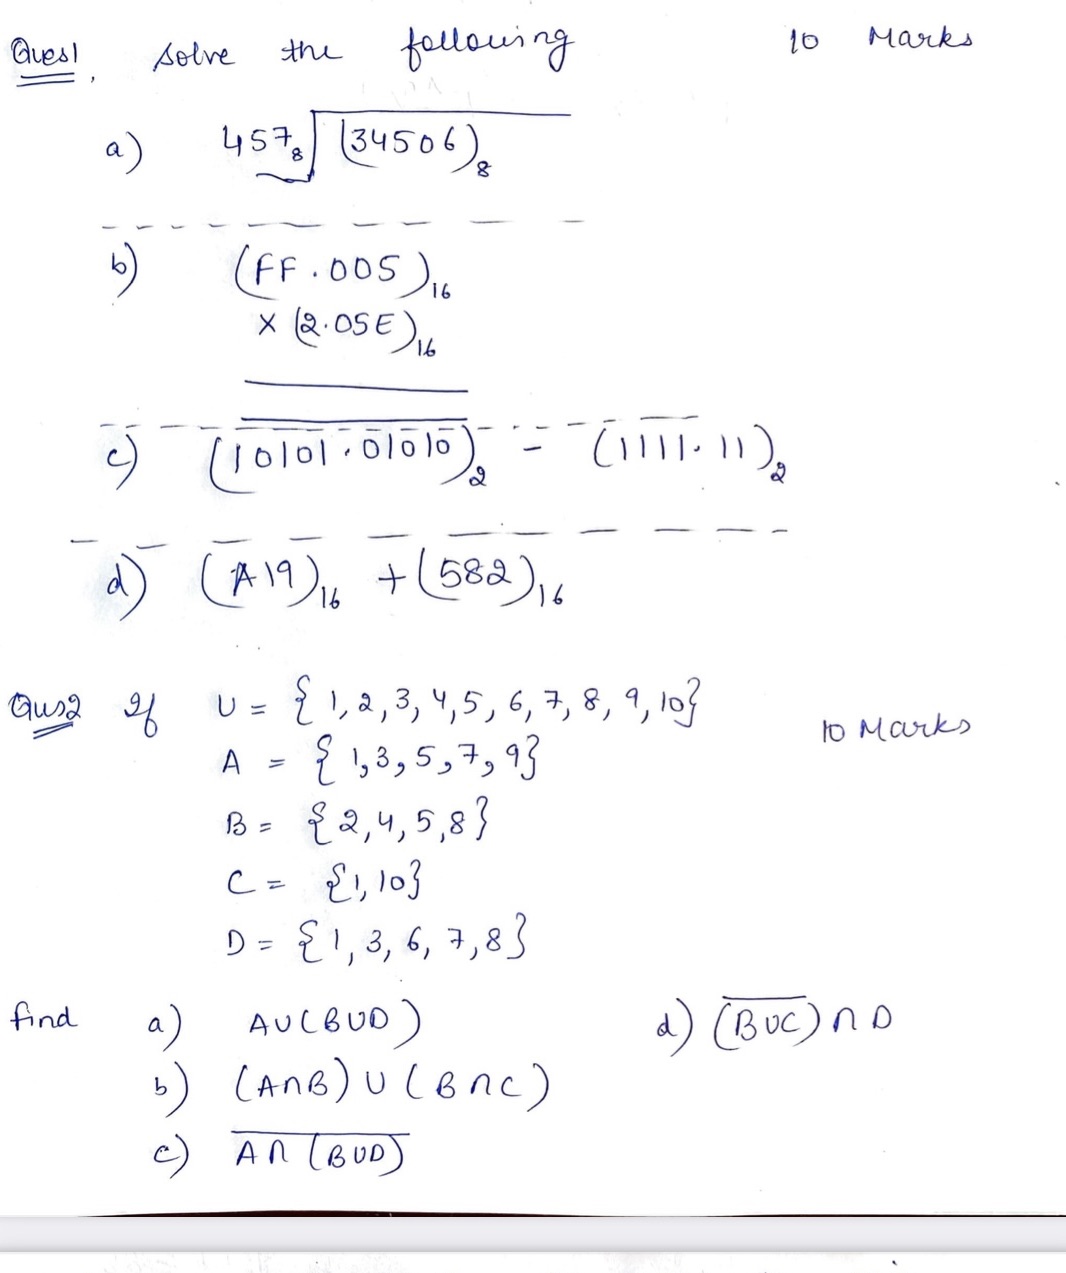 Ques1, Solve the following 10 Marks
a) 457₈ (34506)₈
b) (FF.005)₁₆
× (2.05E)₁₆
c) (10101.01010)₂ - (1111.11)₂
d) (A19)₁₆ + (582)₁₆
Qus2 If U = {1,2,3,4,5,6,7,8,9,10} 10 Marks
A = {1,3,5,7,9}
B = {2,4,5,8}
C = {1,10}
D = {1,3,6,7,8}
find a) A∪(B∪D) d) (B∪C)̅ ∩ D
b) (A∩B) ∪ (B∩C)
c) A̅∩̅(̅B̅∪̅D̅)̅